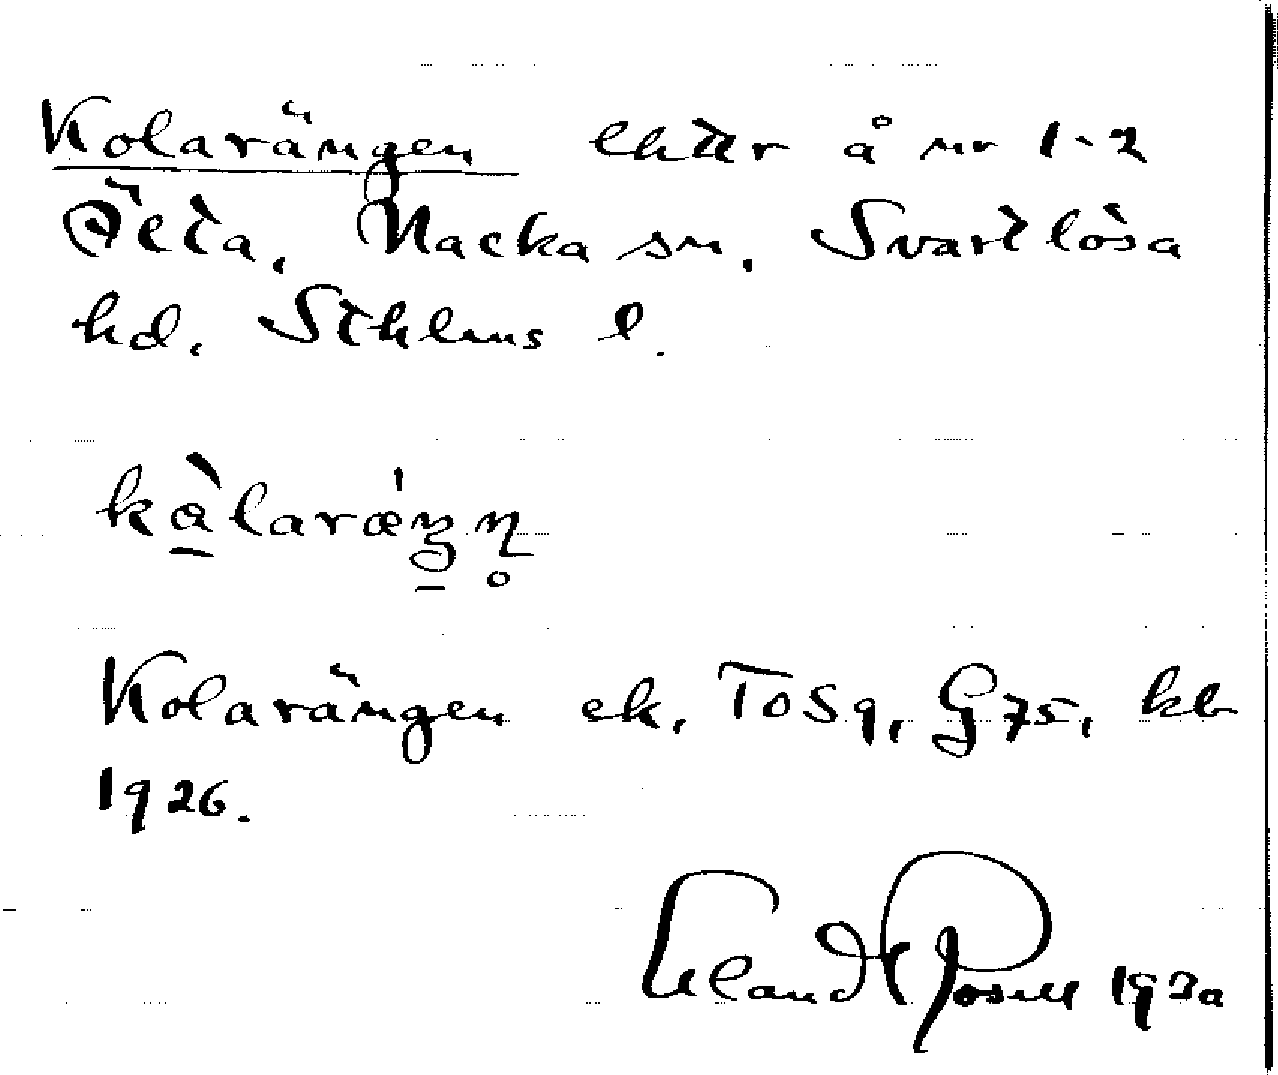 Kolarängen lhttr å nr 1-2
Älta, Nacka sn, Svartlösa
hd. Sthlms l.
kòlarǽŋn̥
Kolarängen ek. ToSq, G75, kb
1926.
Erland Rosell 1930